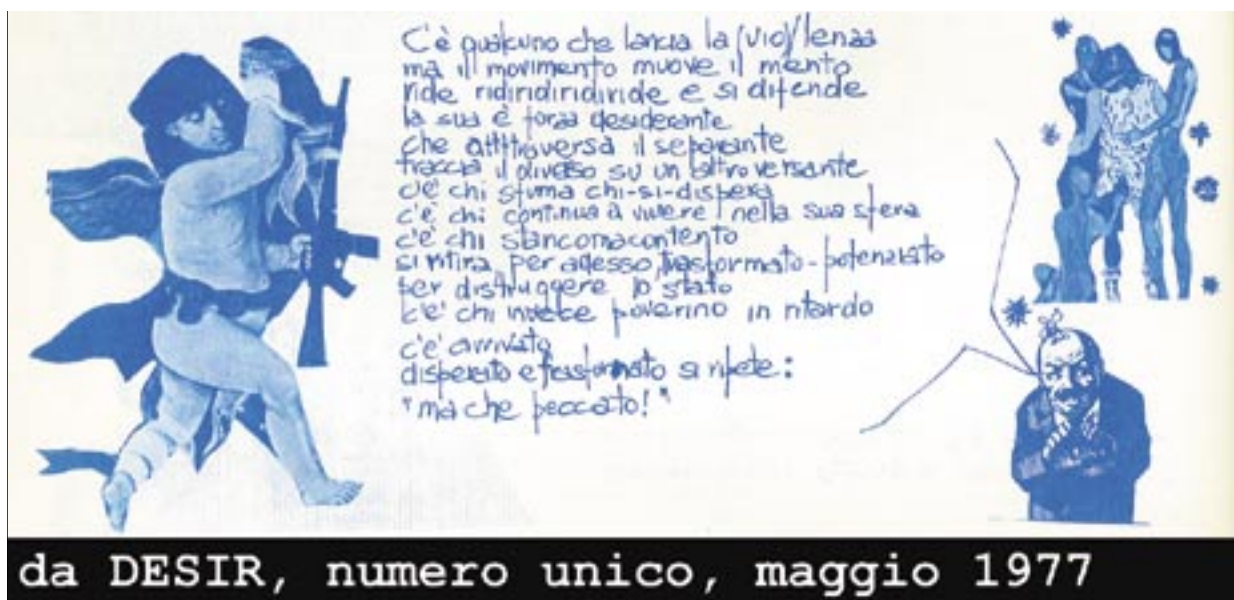 C'è qualcuno che lancia la (vio)/lenza
ma il movimento muove il mento
ride ridiridiridiride e si difende
la sua è forza desiderante
che atttroversa il separante
traccia il diverso su un altro versante
c'è chi sfuma chi-si-dispera
c'è chi continua a vivere nella sua sfera
c'è chi stancomacontento
si ritira, per adesso, trasformato-potenziato
per distruggere lo stato
c'è chi invece poverino in ritardo
c'è arrivato
disperato e trasformato si ripete:
"ma che peccato!"
da DESIR, numero unico, maggio 1977